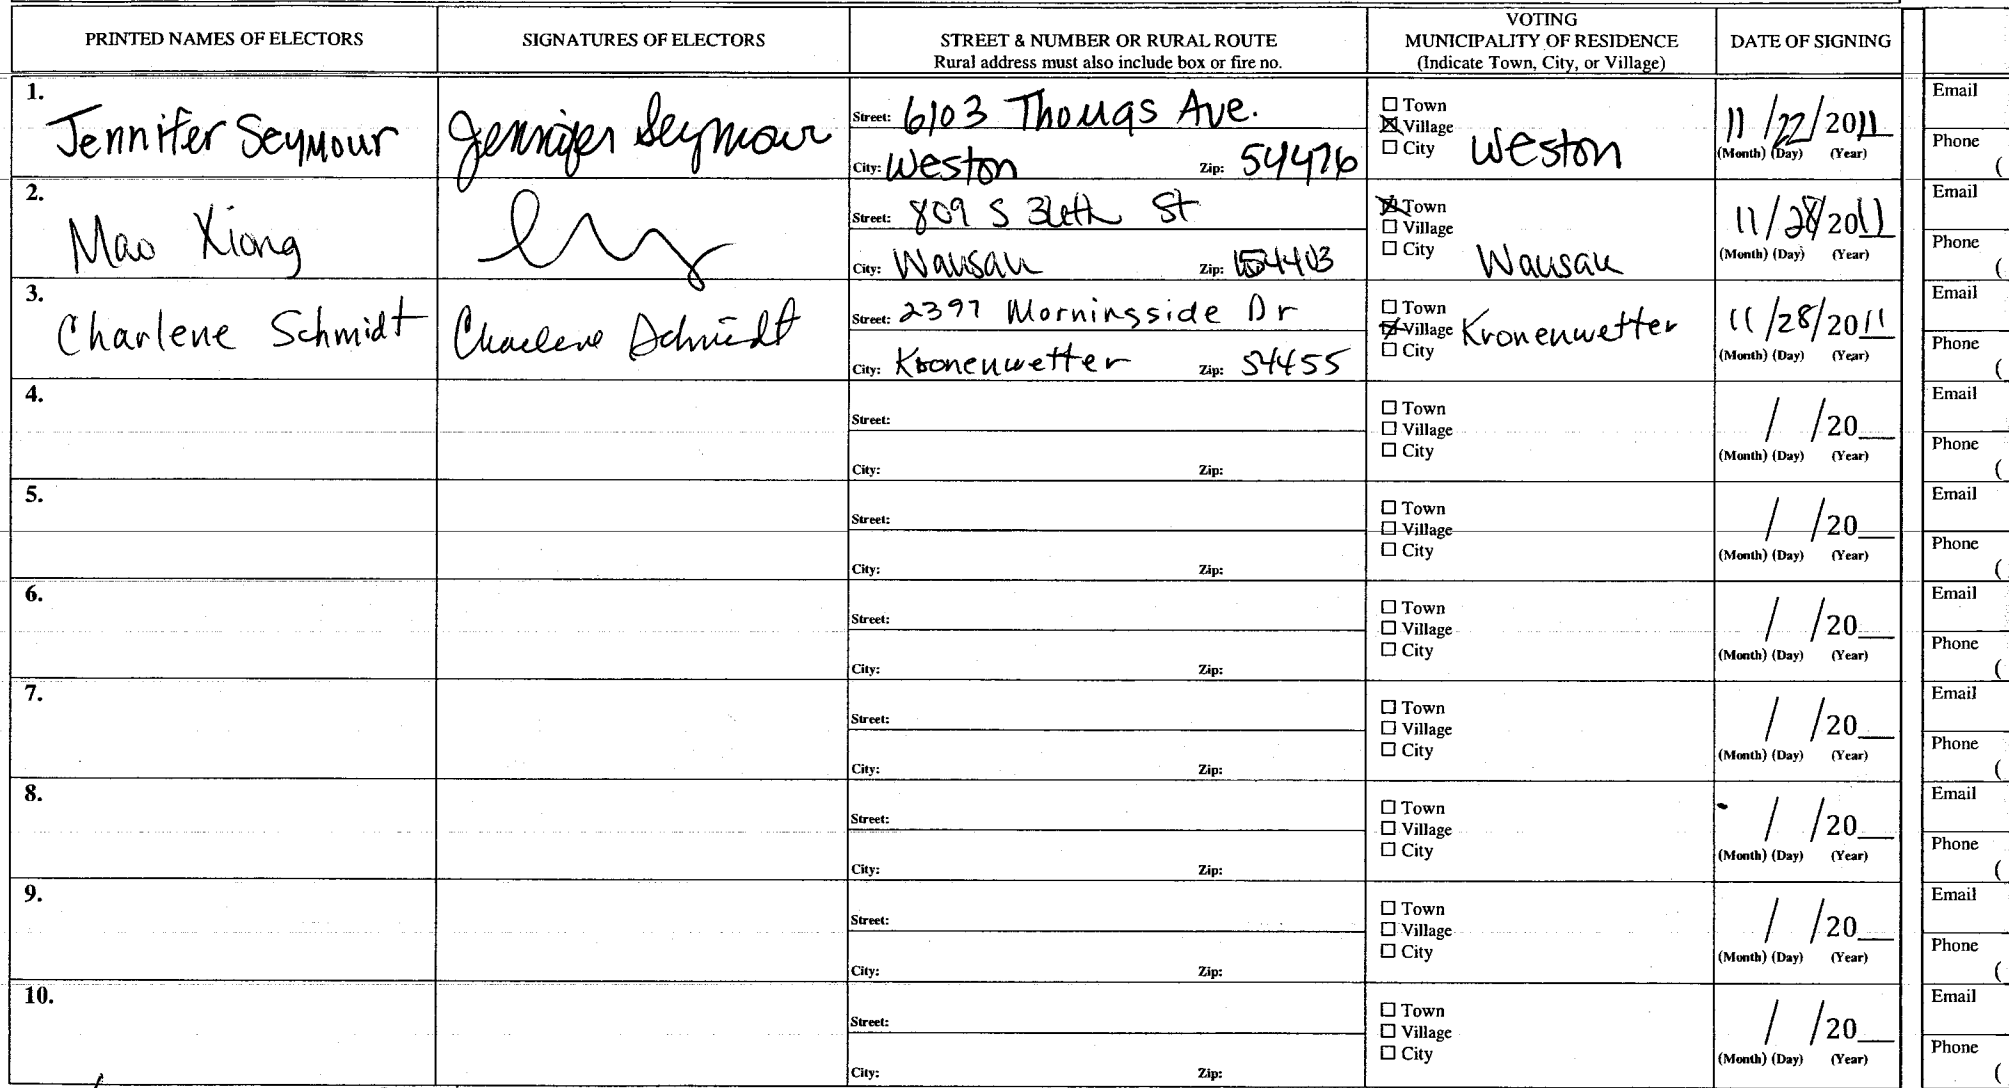 PRINTED NAMES OF ELECTORS
SIGNATURES OF ELECTORS
STREET & NUMBER OR RURAL ROUTE
Rural address must also include box or fire no.
VOTING
MUNICIPALITY OF RESIDENCE
(Indicate Town, City, or Village)
DATE OF SIGNING
1.
Jennifer Seymour
Jennifer Seymour
Street: 6103 Thomas Ave.
City: Weston Zip: 54476
Town
Village
City
Weston
11/22/2011
(Month) (Day) (Year)
Email
Phone
(
2.
Mao Xiong
Street: 809 S 36th St
City: Wausau Zip: 54403
Town
Village
City
Wausau
11/28/2011
(Month) (Day) (Year)
Email
Phone
(
3.
Charlene Schmidt
Charlene Schmidt
Street: 2397 Morningside Dr
City: Kronenwetter Zip: 54455
Town
Village
City
Kronenwetter
11/28/2011
(Month) (Day) (Year)
Email
Phone
(
4.
Street:
City: Zip:
Town
Village
City
/ /20__
(Month) (Day) (Year)
Email
Phone
(
5.
Street:
City: Zip:
Town
Village
City
/ /20__
(Month) (Day) (Year)
Email
Phone
(
6.
Street:
City: Zip:
Town
Village
City
/ /20__
(Month) (Day) (Year)
Email
Phone
(
7.
Street:
City: Zip:
Town
Village
City
/ /20__
(Month) (Day) (Year)
Email
Phone
(
8.
Street:
City: Zip:
Town
Village
City
/ /20__
(Month) (Day) (Year)
Email
Phone
(
9.
Street:
City: Zip:
Town
Village
City
/ /20__
(Month) (Day) (Year)
Email
Phone
(
10.
Street:
City: Zip:
Town
Village
City
/ /20__
(Month) (Day) (Year)
Email
Phone
(